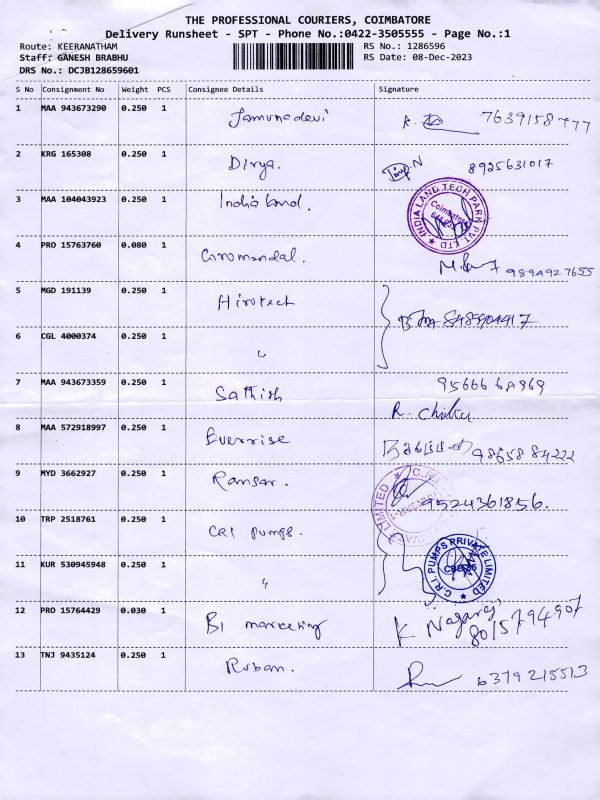 THE PROFESSIONAL COURIERS, COIMBATORE
Delivery Runsheet - SPT - Phone No.:0422-3505555 - Page No.:1
Route: KEERANATHAM RS No.: 1286596
Staff: GANESH BRABHU RS Date: 08-Dec-2023
DRS No.: DCJB128659601
S No Consignment No Weight PCS Consignee Details Signature
1 MAA 943673290 0.250 1 Jamunadevi 7639158777
2 KRG 165308 0.250 1 Divya. 8925631017
3 MAA 104043923 0.250 1 Indialand. INDIA LAND TECH PARK PVT. LTD Coimbatore
4 PRO 15763760 0.080 1 Coromandal. 9894927655
5 MGD 191139 0.250 1 Hirotech
6 CGL 4000374 0.250 1 "
7 MAA 943673359 0.250 1 Sathish
R. Chiku
8 MAA 572918997 0.250 1 Everrise 98658 84222
9 MYD 3662927 0.250 1 Ransar. 9524361856.
10 TRP 2518761 0.250 1 CRI pumps.
11 KUR 530945948 0.250 1 " C.R.I. PUMPS PRIVATE LIMITED
12 PRO 15764429 0.030 1 B1 marketing K Nagaraj 8015794907
13 TNJ 9435124 0.250 1 Ruban. 6379215513